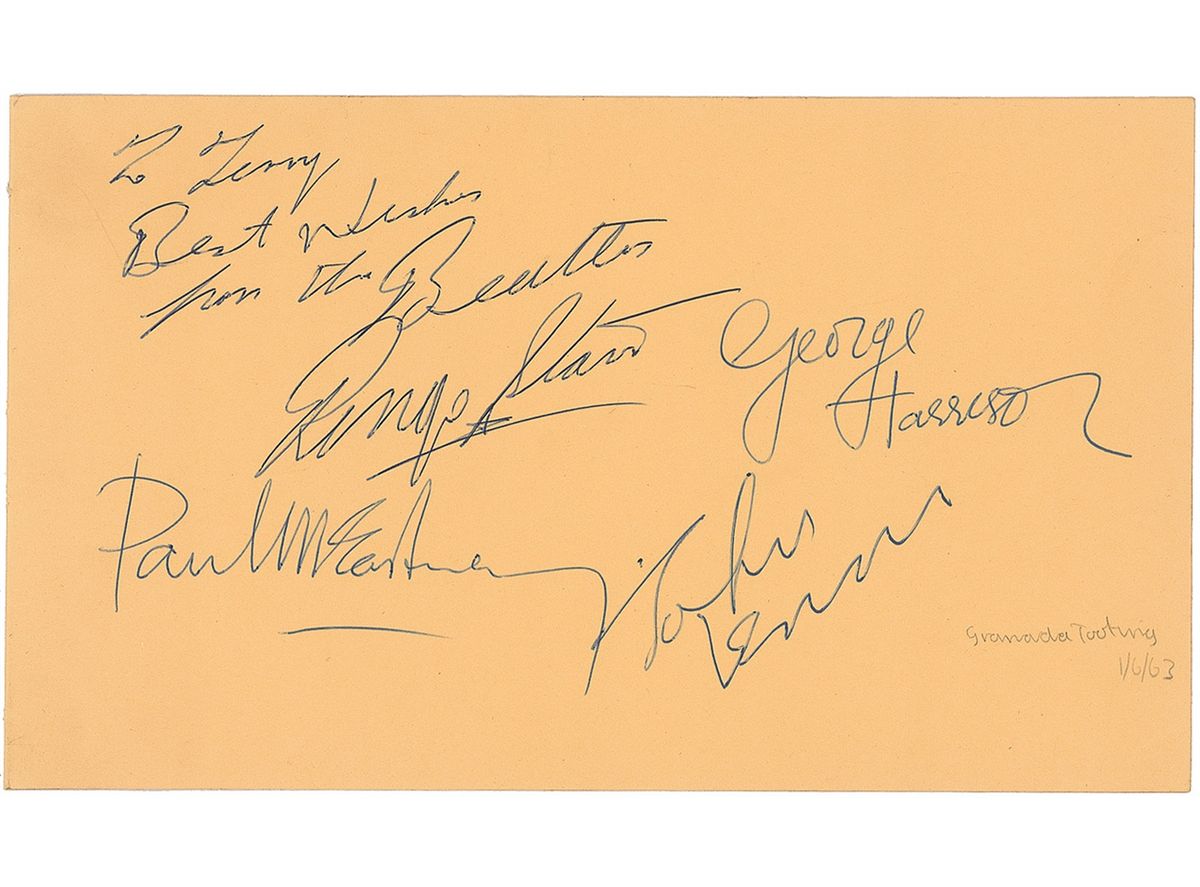 To Terry
Best Wishes
from the Beatles
Ringo Starr
George
Harrison
Paul McCartney
John
Lennon
Granada Tooting
1/6/63